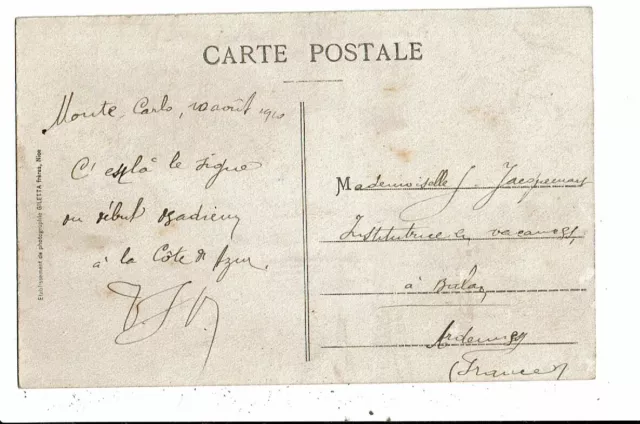 CARTE POSTALE
Monte-Carlo, 10 août 1910
C'est là le signe
du début d'adieu
à la Côte d'Azur.
Mademoiselle J. Jacquemart
Institutrice en vacances,
à
Ardennes
(France)
Etablissement de photographie GILETTA frères, Nice